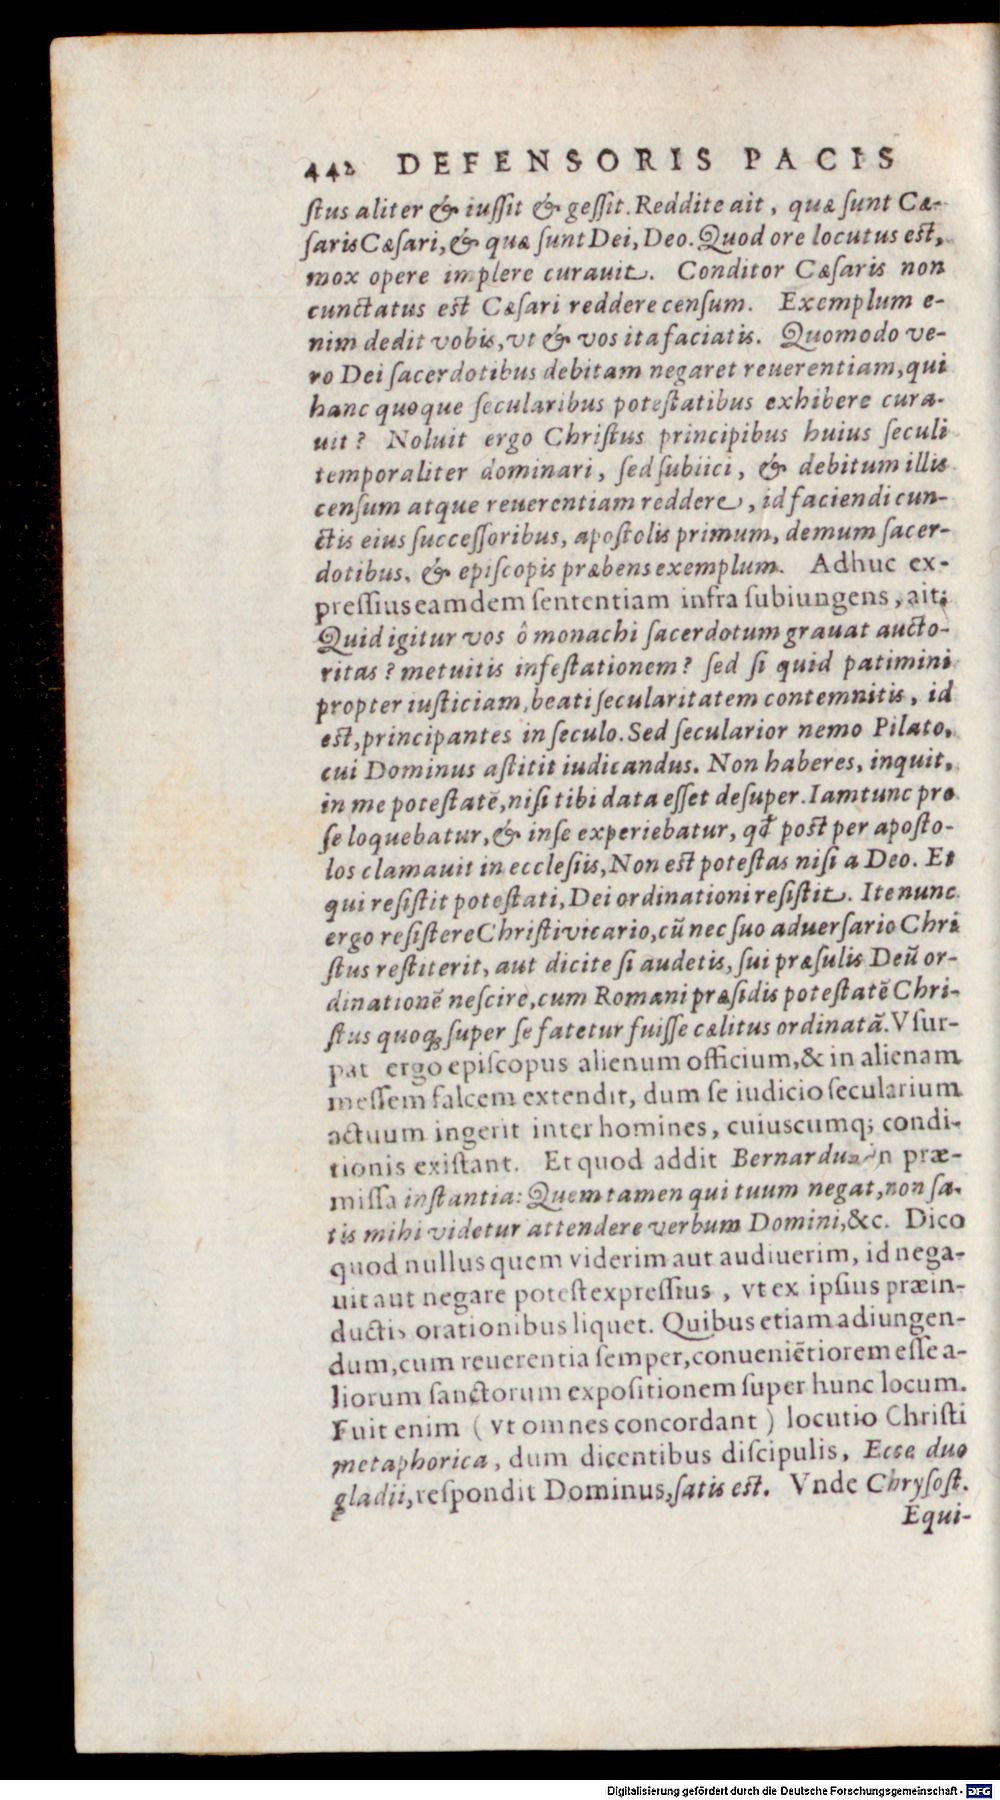 442 DEFENSORIS PACIS
ſtus aliter & iuſſit & geſſit. Reddite ait, quæ ſunt Cæ-
ſaris Cæſari, & quæ ſunt Dei, Deo. Quod ore locutus est,
mox opere implere curauit. Conditor Cæſaris non
cunctatus est Cæſari reddere cenſum. Exemplum e-
nim dedit vobis, vt & vos ita faciatis. Quomodo ve-
ro Dei ſacerdotibus debitam negaret reuerentiam, qui
hanc quoque ſecularibus poteſtatibus exhibere cura-
uit? Noluit ergo Chriſtus principibus huius ſeculi
temporaliter dominari, ſed ſubiici, & debitum illis
cenſum atque reuerentiam reddere, id faciendi cun-
ctis eius ſucceſſoribus, apoſtolis primum, demum ſacer-
dotibus, & epiſcopis præbens exemplum. Adhuc ex-
preſſius eamdem ſententiam infra ſubiungens, ait:
Quid igitur vos ô monachi ſacerdotum grauat aucto-
ritas? metuitis infeſtationem? ſed ſi quid patimini
propter iuſticiam, beati ſecularitatem contemnitis, id
est, principantes in ſeculo. Sed ſecularior nemo Pilato,
cui Dominus aſtitit iudicandus. Non haberes, inquit,
in me poteſtatē, niſi tibi data eſſet deſuper. Iam tunc pro
ſe loquebatur, & in ſe experiebatur, qd̄ post per apoſto-
los clamauit in eccleſiis, Non est poteſtas niſi a Deo. Et
qui reſiſtit poteſtati, Dei ordinationi reſiſtit. Ite nunc
ergo reſiſtere Chriſti vicario, cū nec ſuo aduerſario Chri
ſtus reſtiterit, aut dicite ſi audetis, ſui præſulis Deū or-
dinationē neſcire, cum Romani præſidis poteſtatē Chri-
ſtus quoq; ſuper ſe fatetur fuiſſe cælitus ordinatā. Vſur-
pat ergo epiſcopus alienum officium, & in alienam
meſſem falcem extendit, dum ſe iudicio ſecularium
actuum ingerit inter homines, cuiuscumq; condi-
tionis exiſtant. Et quod addit Bernardus in præ-
miſſa inſtantia: Quem tamen qui tuum negat, non ſa-
tis mihi videtur attendere verbum Domini, &c. Dico
quod nullus quem viderim aut audiuerim, id nega-
uit aut negare poteſt expreſſius, vt ex ipſius præin-
ductis orationibus liquet. Quibus etiam adiungen-
dum, cum reuerentia ſemper, conueniētiorem eſſe a-
liorum ſanctorum expoſitionem ſuper hunc locum.
Fuit enim ( vt omnes concordant ) locutio Chriſti
metaphorica, dum dicentibus diſcipulis, Ecce duo
gladii, reſpondit Dominus, ſatis est. Vnde Chryſoſt.
Equi-
Digitalisierung gefördert durch die Deutsche Forschungsgemeinschaft - DFG